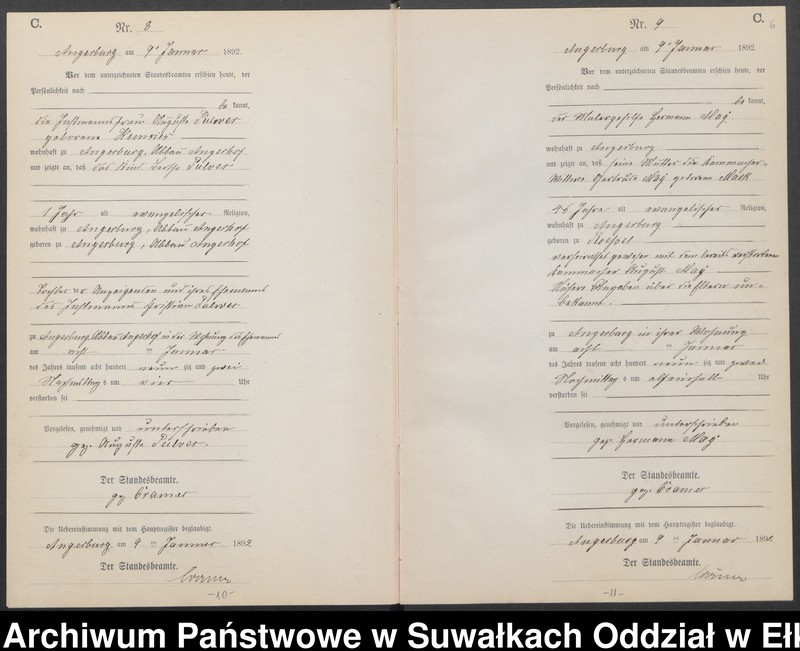 C.
Nr. 8
Angerburg am 9ten Januar 1892.
Vor dem unterzeichneten Standesbeamten erschien heute, der
Persönlichkeit nach
be kannt,
die Instmannsfrau Auguste Pulver
geborene
wohnhaft zu Angerburg, Abbau Angerhof
und zeigte an, daß das Kind Bertha Pulver
1 Jahr alt evangelischer Religion,
wohnhaft zu Angerburg, Abbau Angerhof
geboren zu Angerburg, Abbau Angerhof
Tochter der Anzeigenden und ihres Ehemannes
des Instmanns Christian Pulver
zu Angerburg, Abbau Angerhof in der Wohnung des Ehemannes
am acht ten Januar
des Jahres tausend acht hundert neun zig und zwei
Nachmittag s um vier Uhr
verstorben sei
Vorgelesen, genehmigt und unterschrieben
gez. Auguste Pulver.
Der Standesbeamte.
gez. Cramer
Die Uebereinstimmung mit dem Hauptregister beglaubigt.
Angerburg am 9 ten Januar 1892
Der Standesbeamte.
Cramer
-10-
Nr. 9
C. 6
Angerburg am 9ten Januar 1892
Vor dem unterzeichneten Standesbeamten erschien heute, der
Persönlichkeit nach
be kannt,
der Malergehilfe Hermann May
wohnhaft zu Angerburg
und zeigte an, daß seine Mutter die Kammacher-
Wittwe Gertrude May geborene Mack
Jahre alt evangelischer Religion,
wohnhaft zu Angerburg
geboren zu Roessel
verheirathet gewesen mit dem bereits verstorbenen
Kammacher August May
Nähere Angaben über die Eltern un-
bekannt.
zu Angerburg in ihrer Wohnung
am acht ten Januar
des Jahres tausend acht hundert neun zig und zwei
Nachmittag s um elfeinhalb Uhr
verstorben sei
Vorgelesen, genehmigt und unterschrieben
gez. Hermann May
Der Standesbeamte.
gez. Cramer
Die Uebereinstimmung mit dem Hauptregister beglaubigt.
Angerburg am 9 ten Januar 1892
Der Standesbeamte.
Cramer
-11-
Archiwum Państwowe w Suwałkach Oddział w Ełk